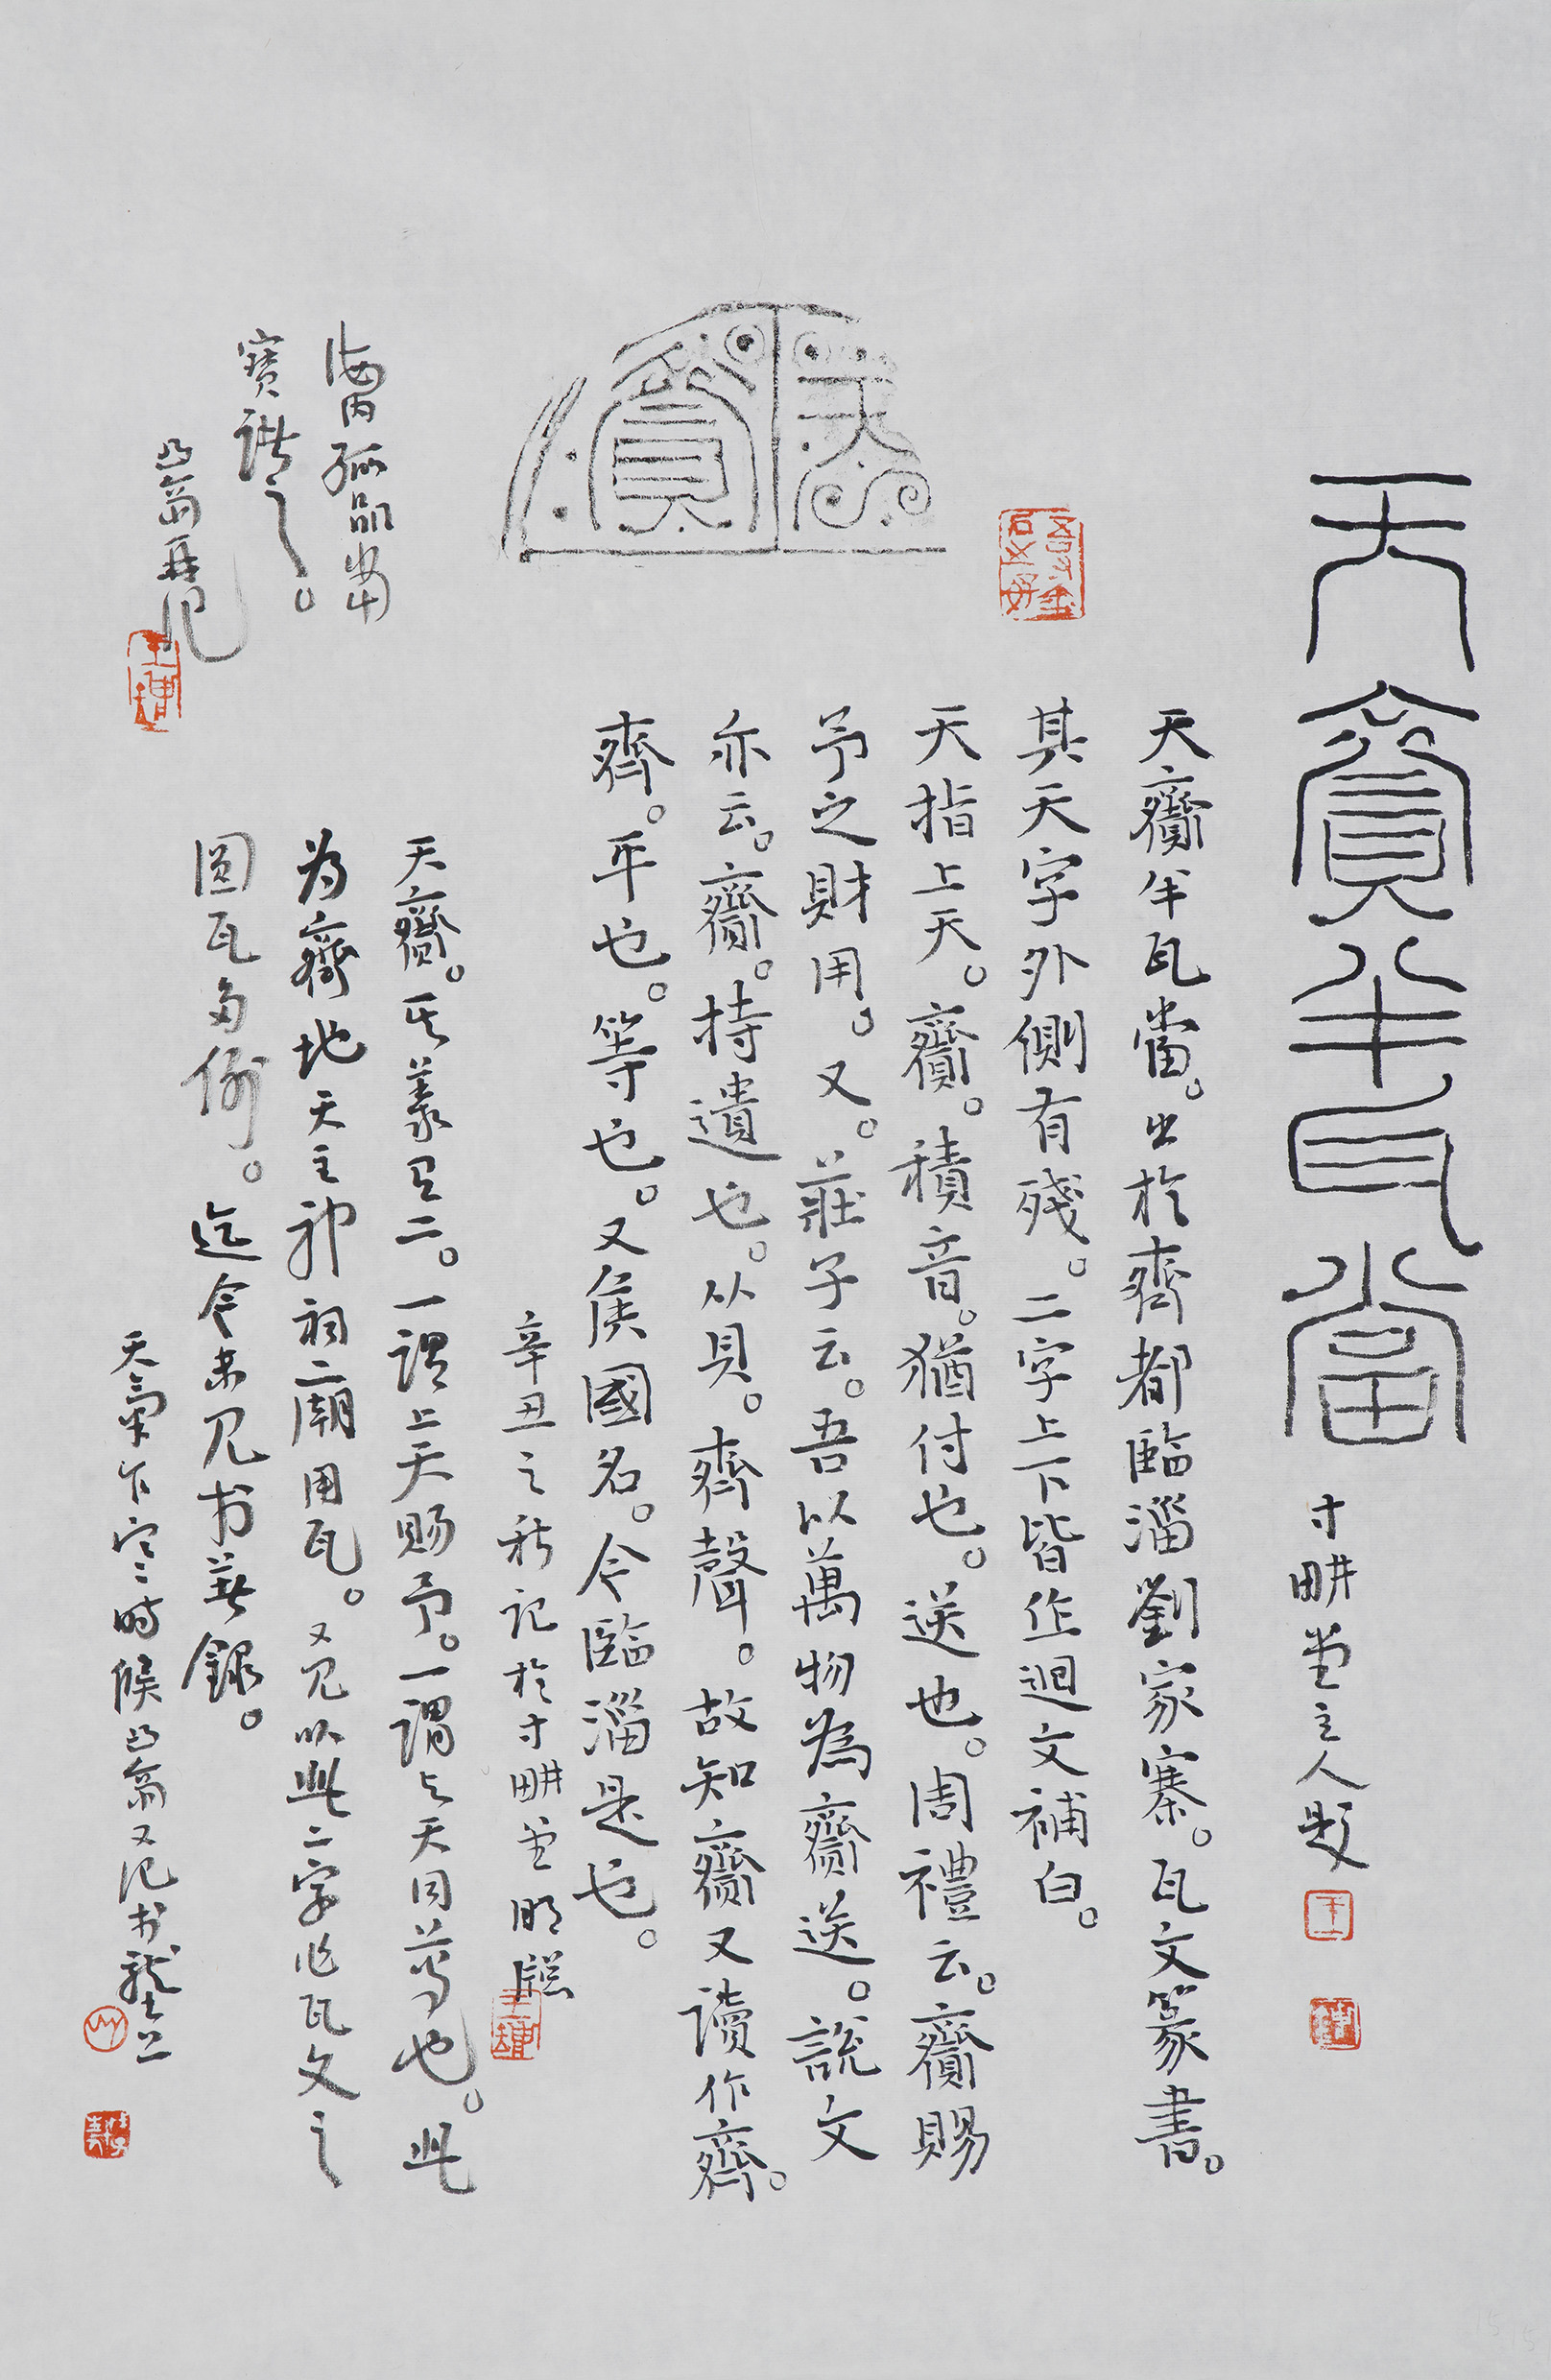 天齎半瓦當
寸畊堂主人題
天齎半瓦當。出於齊都臨淄劉家寨。瓦文篆書。
其天字外側有殘。二字上下皆作迴文補白。
天指上天。齎。積音。猶付也。送也。周禮云。齎賜
予之財用。又。莊子云。吾以萬物為齎送。說文
亦云。齎。持遺也。从貝。齊聲。故知齎又讀作齊。
齊。平也。等也。又侯國名。今臨淄是也。
辛丑之秋記於寸畊堂
天齎。其義有二。一謂上天賜予。一謂与天同等也。此
为齊地天主祁祠廟用瓦。又见以此二字作瓦文之
圆瓦多例。迄今未见书著錄。
天氣乍寒时候凸翁又记书
海内孤品當
寶諸之。
凸翁再记
天齎